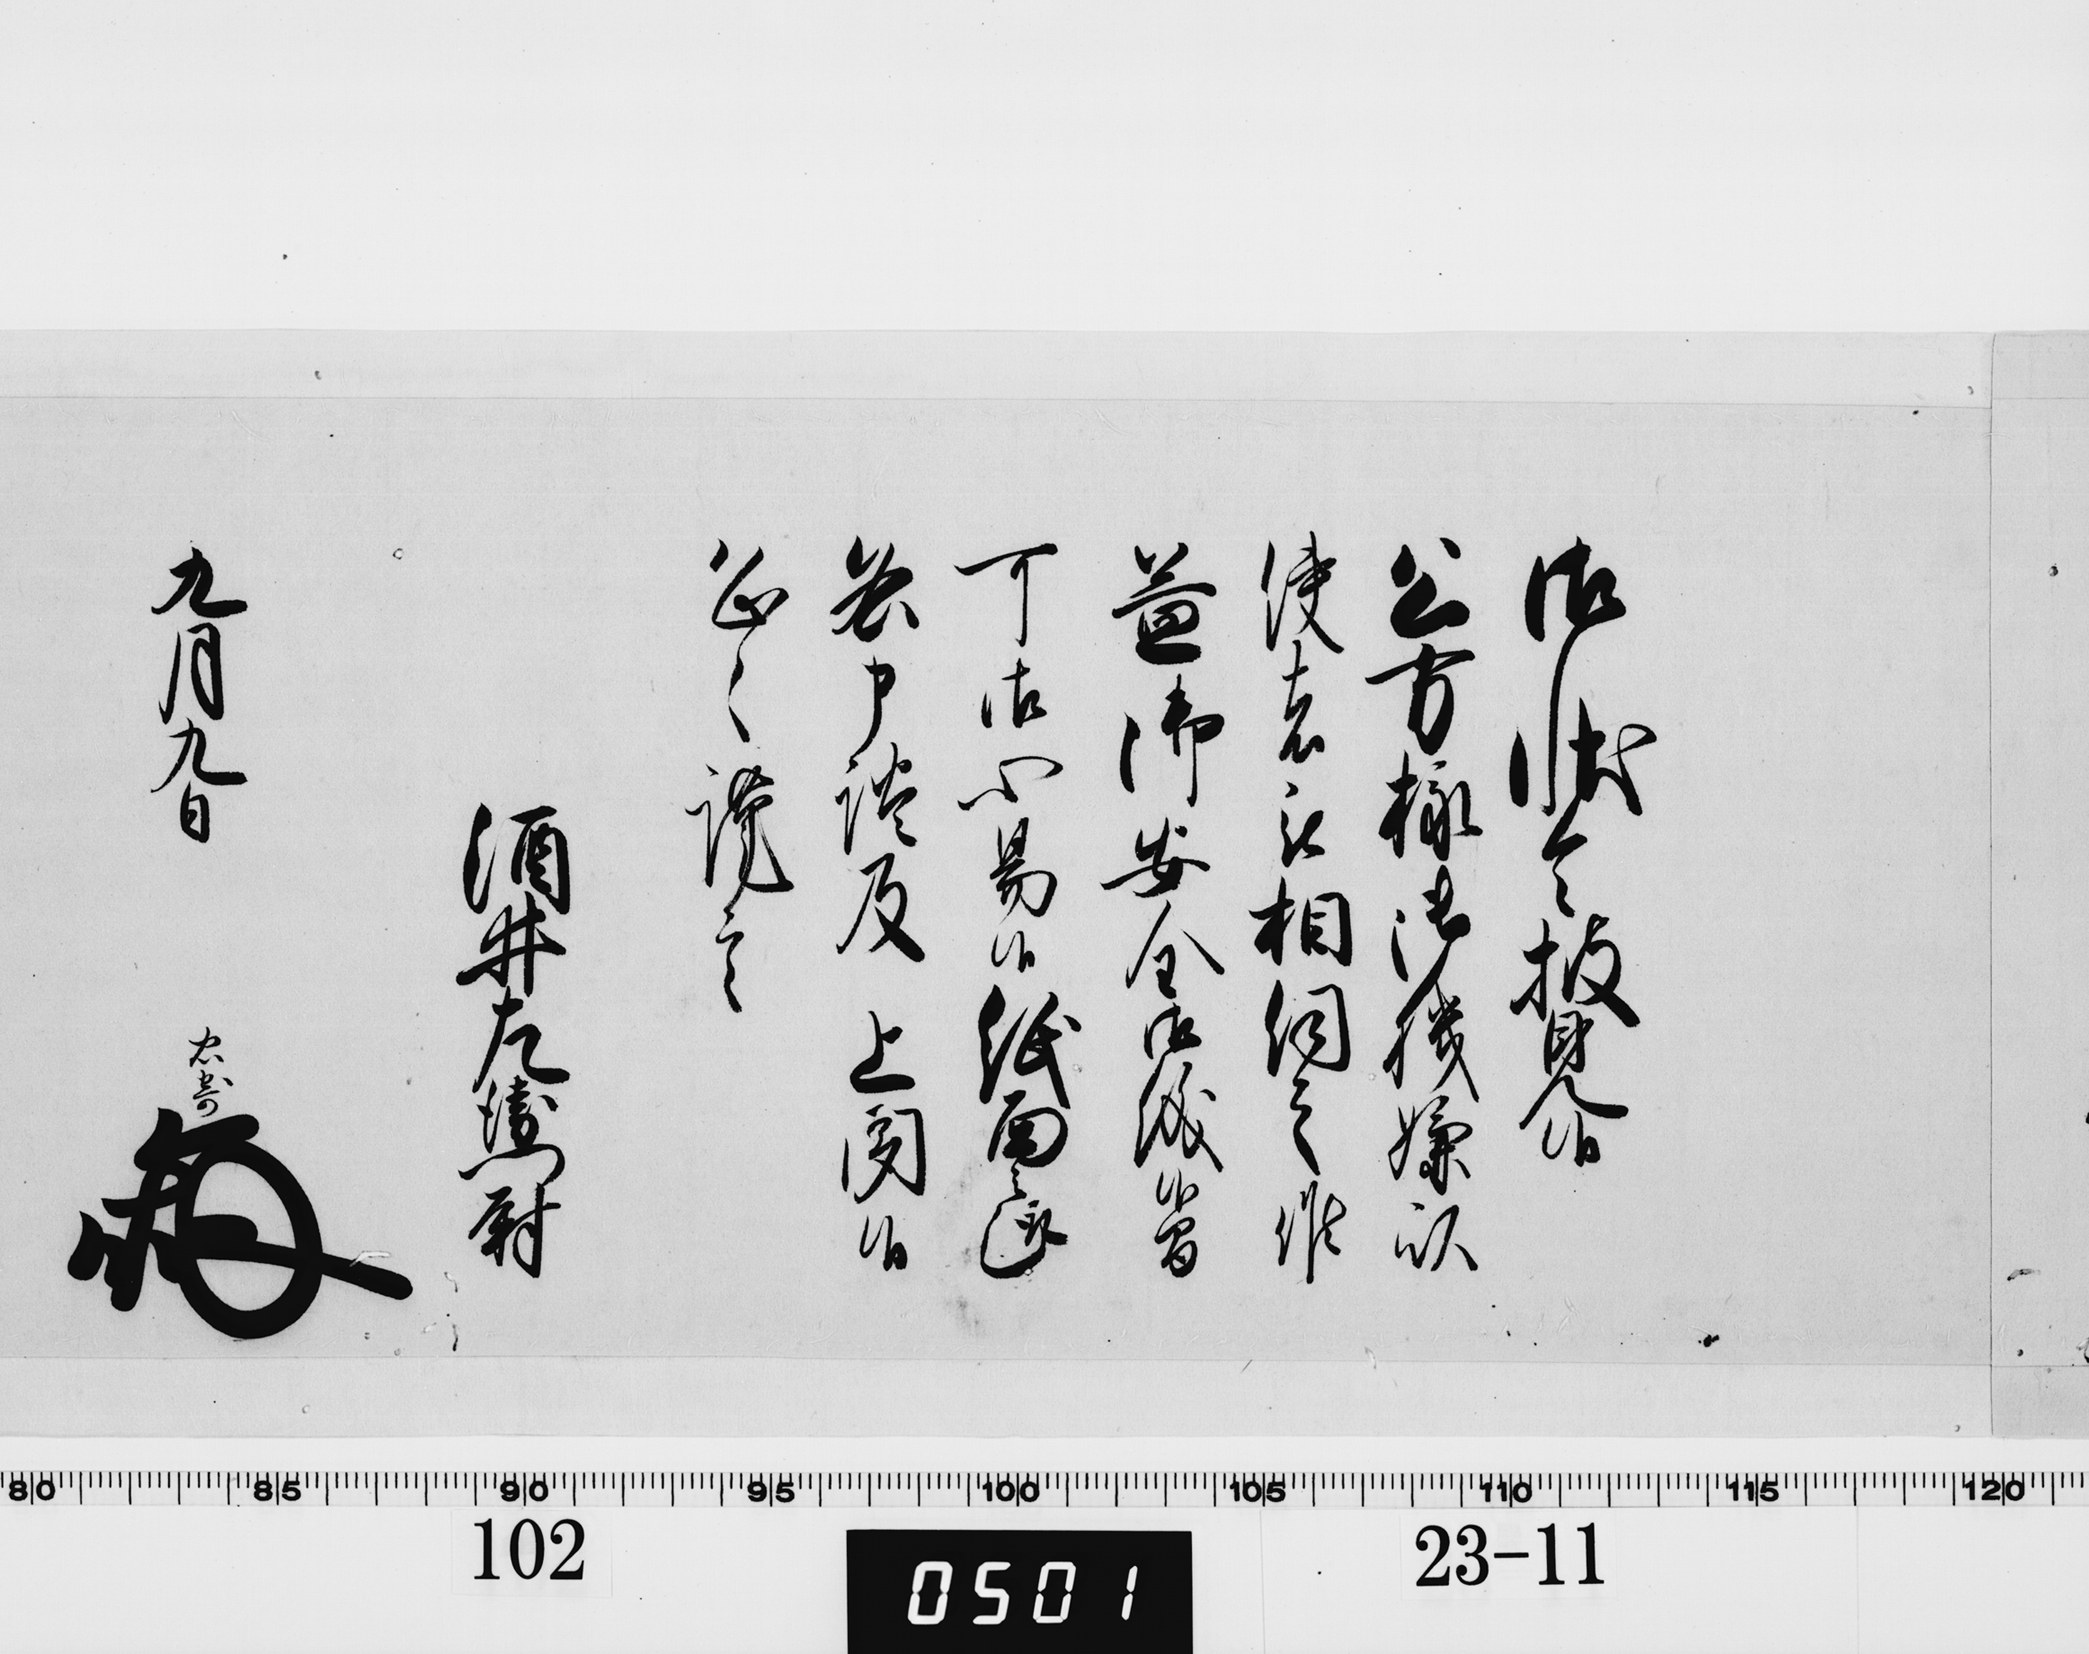 御状令披見候
公方様御機嫌以
使者被相伺之候
益御安全御儀候間
可御心易候紙面之趣
各申談及 上聞候
恐々謹言
酒井左衛門尉
九月九日
忠寄
102
0501
23-11
80 85 90 95 100 105 110 115 120